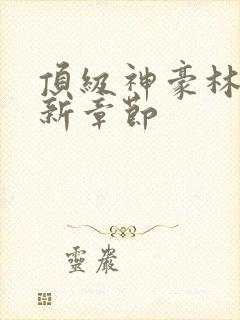 頂級神豪林
新章節
靈巖